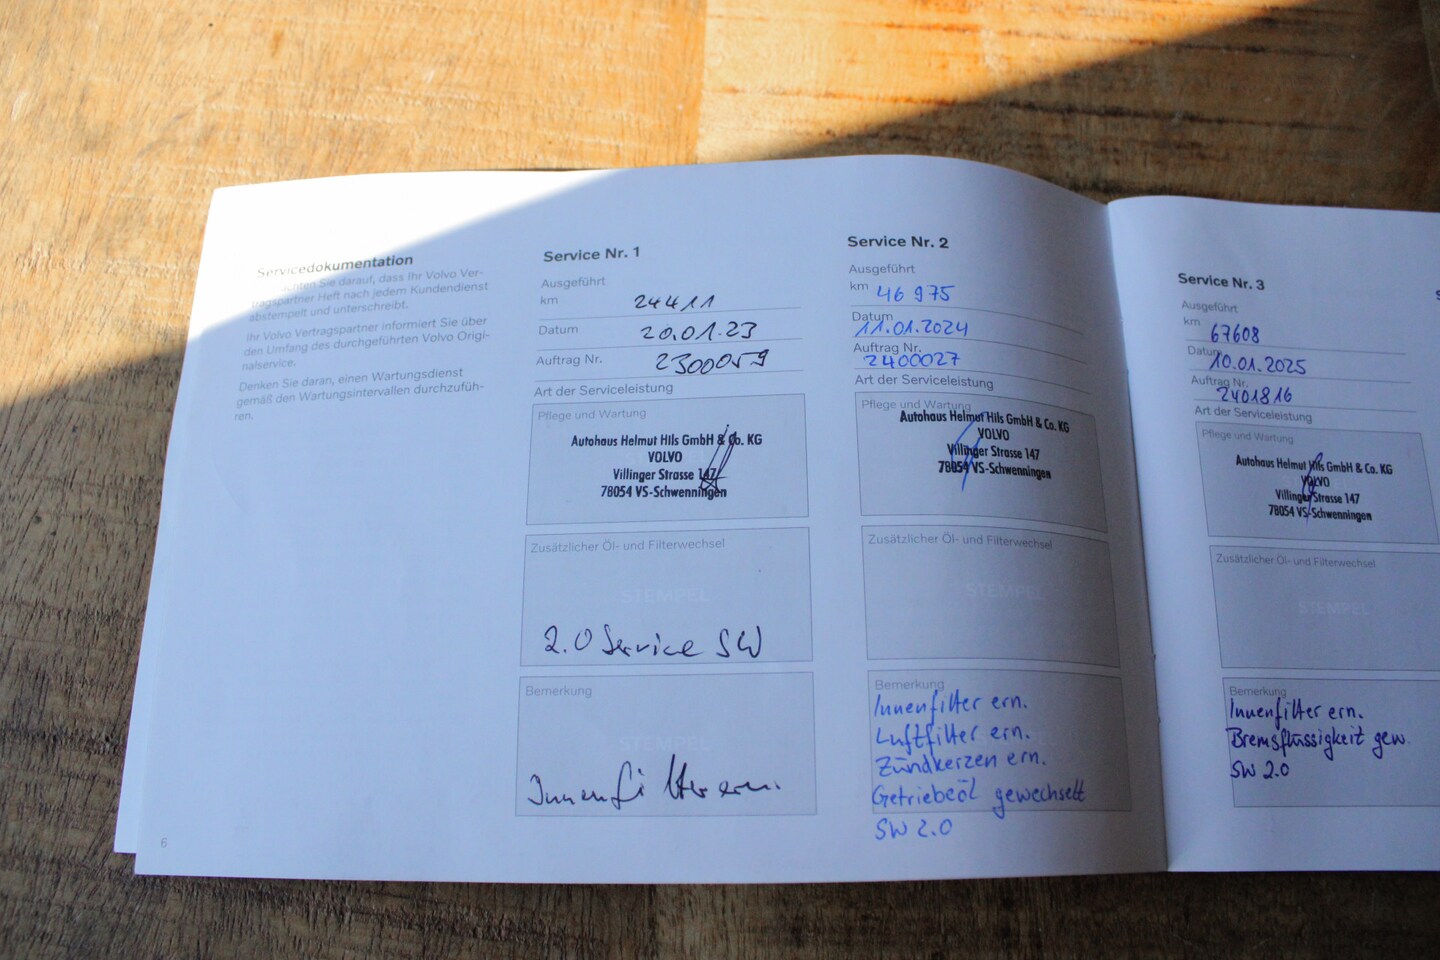 Servicedokumentation
achten Sie darauf, dass Ihr Volvo Ver-
tragspartner Heft nach jedem Kundendienst
abstempelt und unterschreibt.
Ihr Volvo Vertragspartner informiert Sie über
den Umfang des durchgeführten Volvo Origi-
nalservice.
Denken Sie daran, einen Wartungsdienst
gemäß den Wartungsintervallen durchzufüh-
ren.
6
Service Nr. 1
Ausgeführt
km 24411
Datum 20.01.23
Auftrag Nr. 2300059
Art der Serviceleistung
Pflege und Wartung
Autohaus Helmut Hils GmbH & Co. KG
VOLVO
Villinger Strasse 147
78054 VS-Schwenningen
Zusätzlicher Öl- und Filterwechsel
STEMPEL
2.0 Service SW
Bemerkung
STEMPEL
Innenfilter ern.
Service Nr. 2
Ausgeführt
km 46 975
Datum
11.01.2024
Auftrag Nr.
2400027
Art der Serviceleistung
Pflege und Wartung
Autohaus Helmut Hils GmbH & Co. KG
VOLVO
Villinger Strasse 147
78054 VS-Schwenningen
Zusätzlicher Öl- und Filterwechsel
STEMPEL
Bemerkung
Innenfilter ern.
Luftfilter ern.
Zündkerzen ern.
Getriebeöl gewechselt
SW 2.0
Service Nr. 3
Ausgeführt
km
67608
Datum
10.01.2025
Auftrag Nr.
2401816
Art der Serviceleistung
Pflege und Wartung
Autohaus Helmut Hils GmbH & Co. KG
VOLVO
Villinger Strasse 147
78054 VS-Schwenningen
Zusätzlicher Öl- und Filterwechsel
STEMPEL
Bemerkung
Innenfilter ern.
Bremsflüssigkeit gew.
SW 2.0